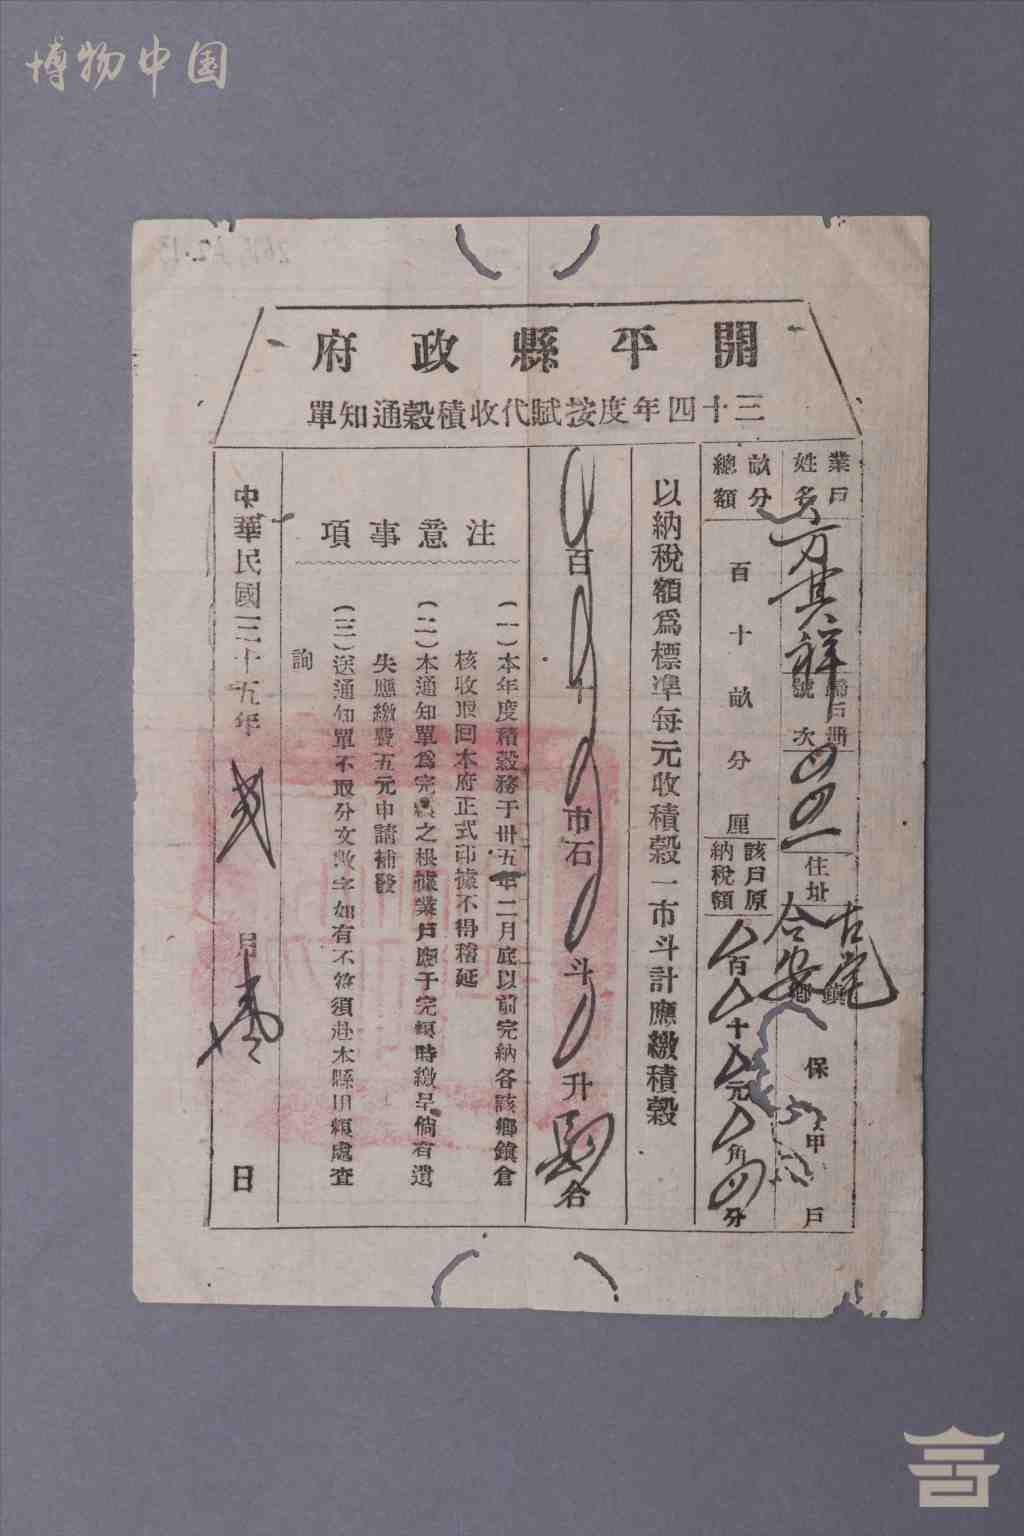 博物中国
開平縣政府
三十四年度按賦代收積穀通知單
業戶姓名
方其祥
歸戶冊號次
住址
古宅
合安
鄉鎮
保
甲
戶
畝分總額
百十畝分厘
該戶原納稅額
百十元角分
以納稅額爲標準每元收積穀一市斗計應繳積穀
百十市石斗升合
注意事項
(一)本年度積穀務于卅五年二月底以前完納各該鄉鎮倉
核收取回本府正式印據不得稽延
(二)本通知單爲完糧之根據業戶應于完糧時繳呈倘有遺
失應繳費五元申請補發
(三)送通知單不取分文數字如有不符須赴本縣田糧處查
詢
中華民國三十五年
月
日